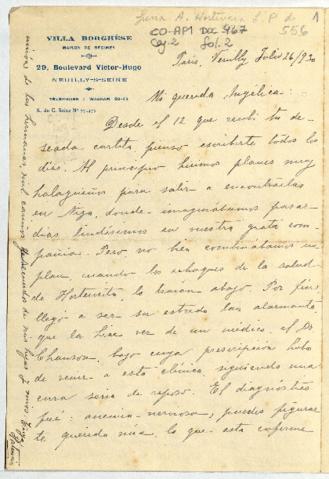 VILLA BORGHÈSE
MAISON DE RÉGIMES
29, Boulevard Victor-Hugo
NEUILLY-S-SEINE
TÉLÉPHONE : WAGRAM
R. du C. Seine Nº
CO-APM DOC 467
Caj-2 Fol. 2
S. P. de 556
1
París, Neuilly, Julio 26/930
Mi querida Angélica:
Desde el 12 que recibí tu de-
seada cartita pienso escribirte todos los
días. Al principio hicimos planes muy
halagueños para salir a encontrarlas
en Niza, donde imaginábamos pasar
días lindísimos en nuestra grata com-
pañía. Pero no bien combinábamos un
plan, cuando los achaques de la salud
de Hortensita lo hacían abajo. Por fin
llegó a ser su estado tan alarmante
que la hice ver de un médico, el Dr
Chanson, bajo cuya prescripción hubo
de venir a esta clínica, siguiendo una
cura seria de reposo. El diagnóstico
fué: anemia-nerviosa; puedes figurar
te querida mía lo que esta enferme